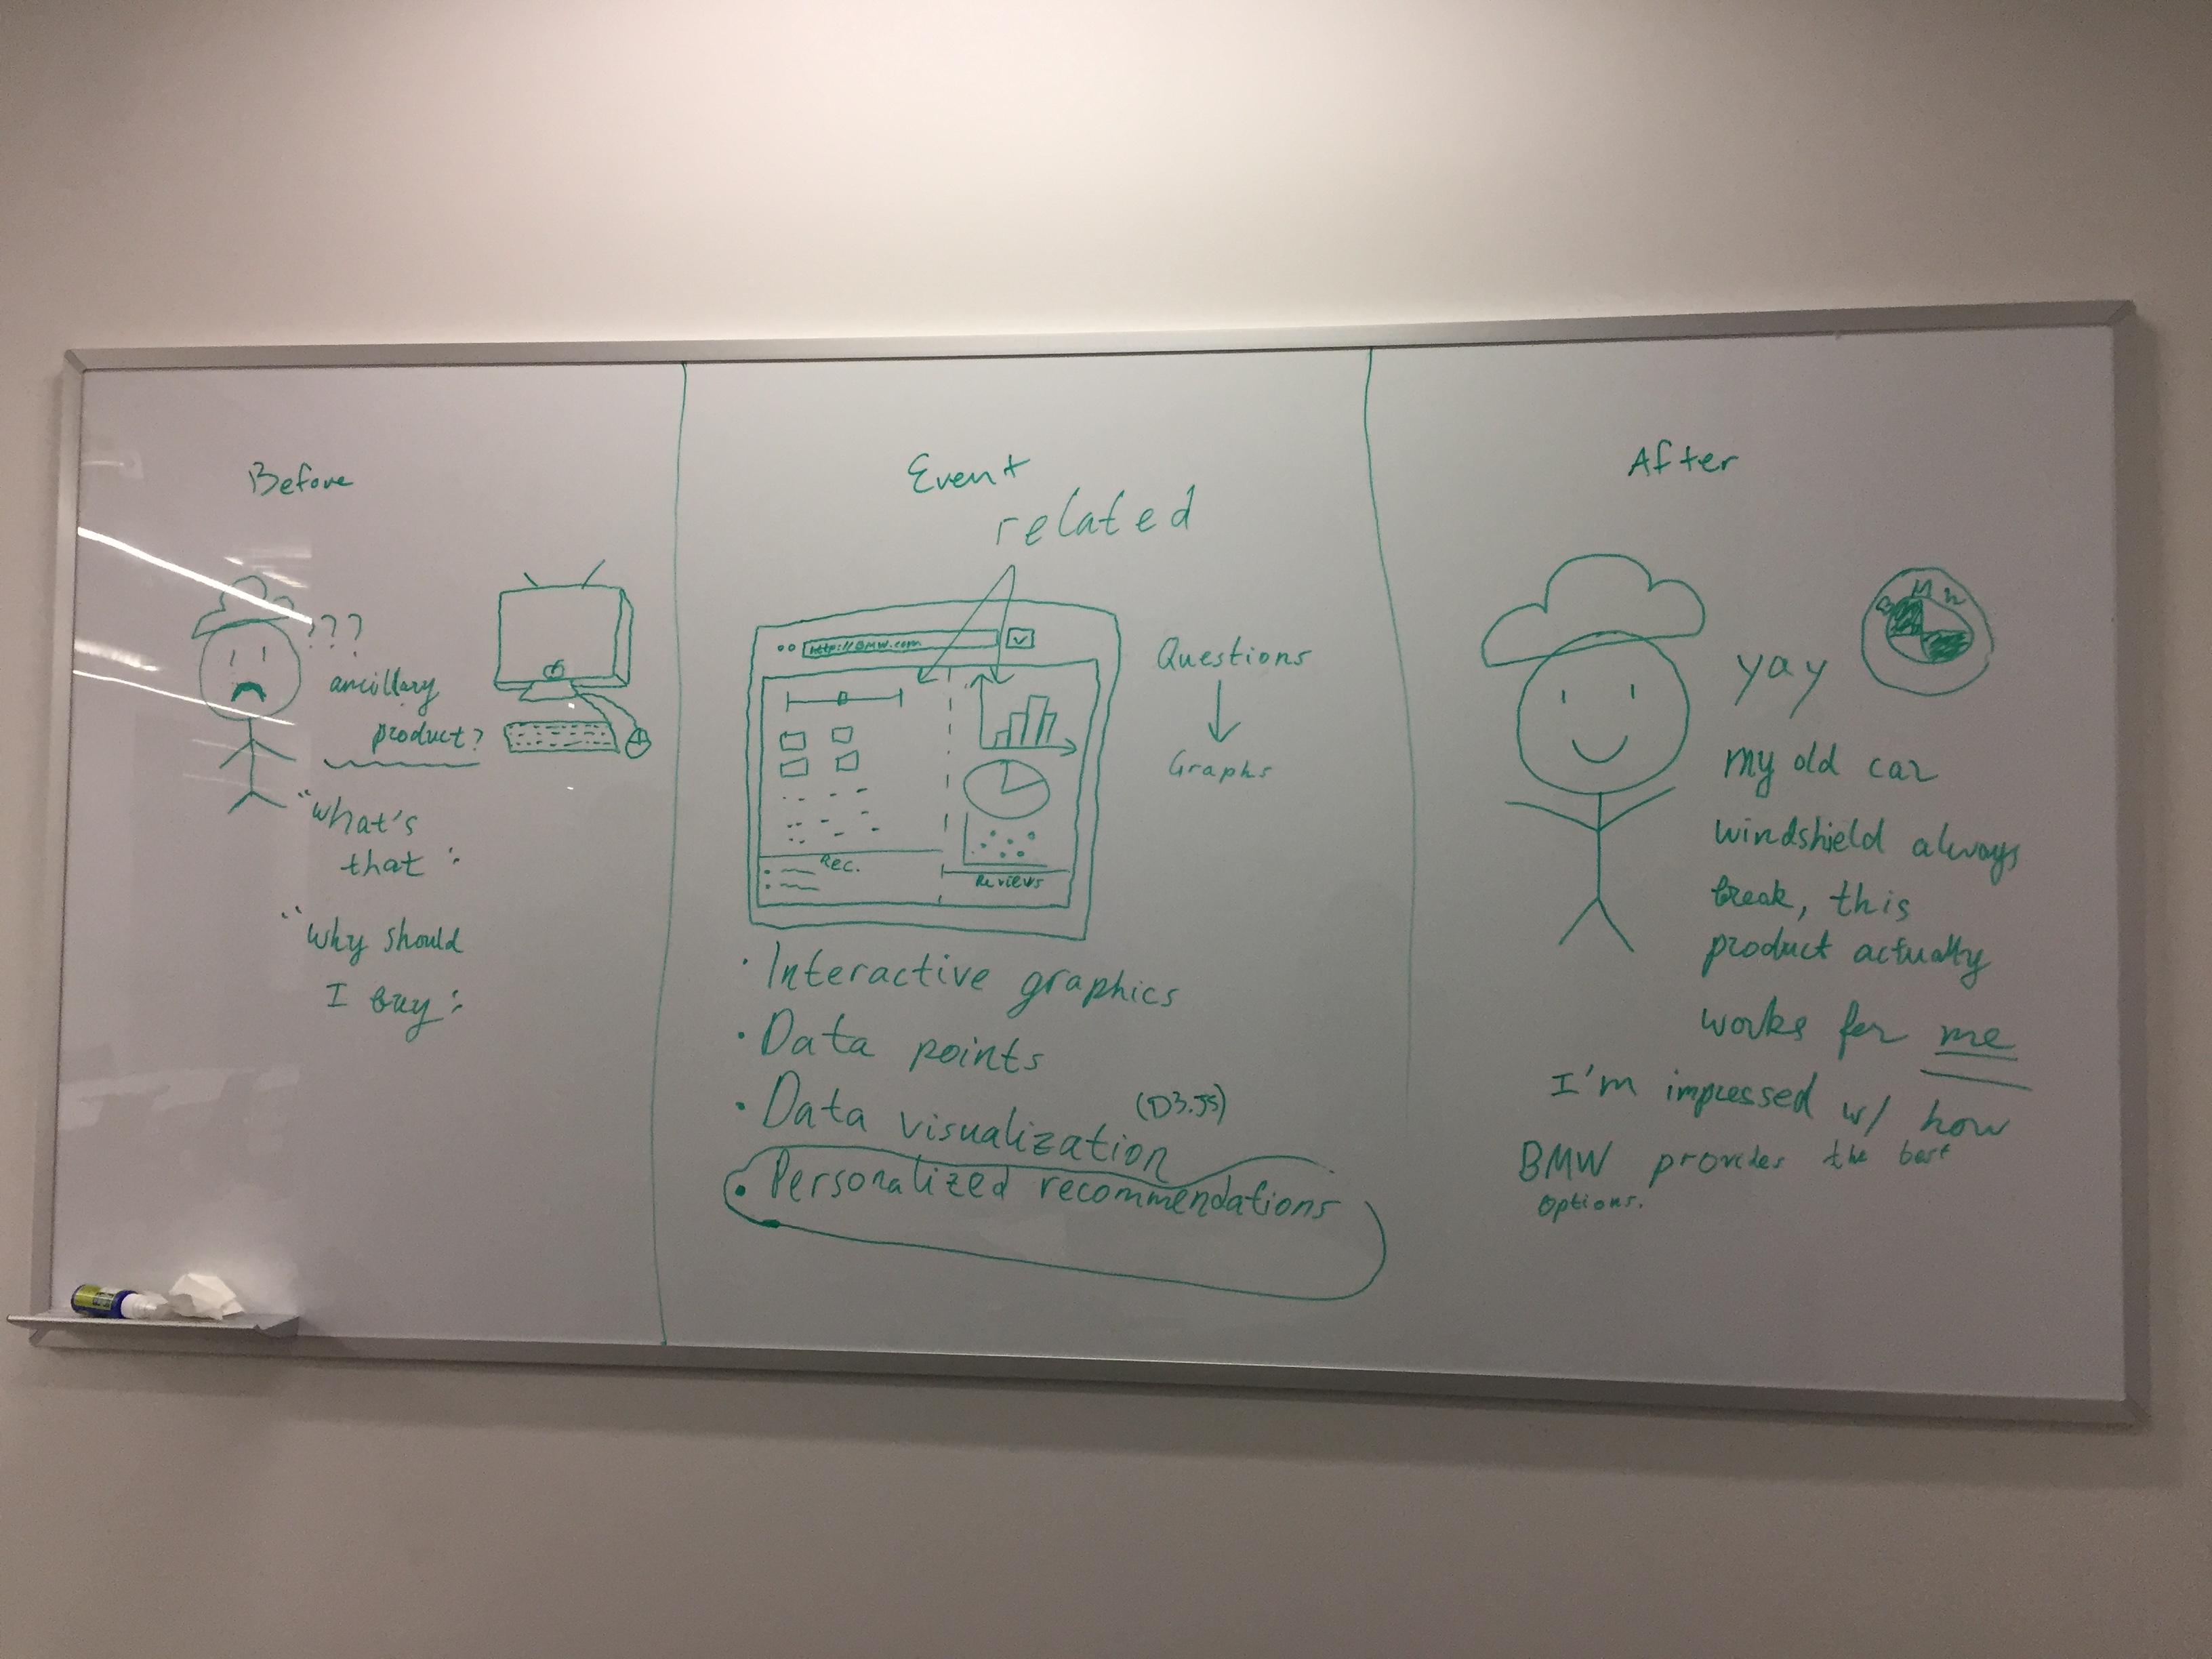 Before
???
ancillary
product?
"What's
that :
"Why should
I buy :
Event
related
http://BMW.com
Rec.
Reviews
Questions
Graphs
· Interactive graphics
· Data points
· Data visualization (D3.JS)
· Personalized recommendations
After
BMW
yay
my old car
windshield always
break, this
product actually
works for me
I'm impressed w/ how
BMW provides the best
options.